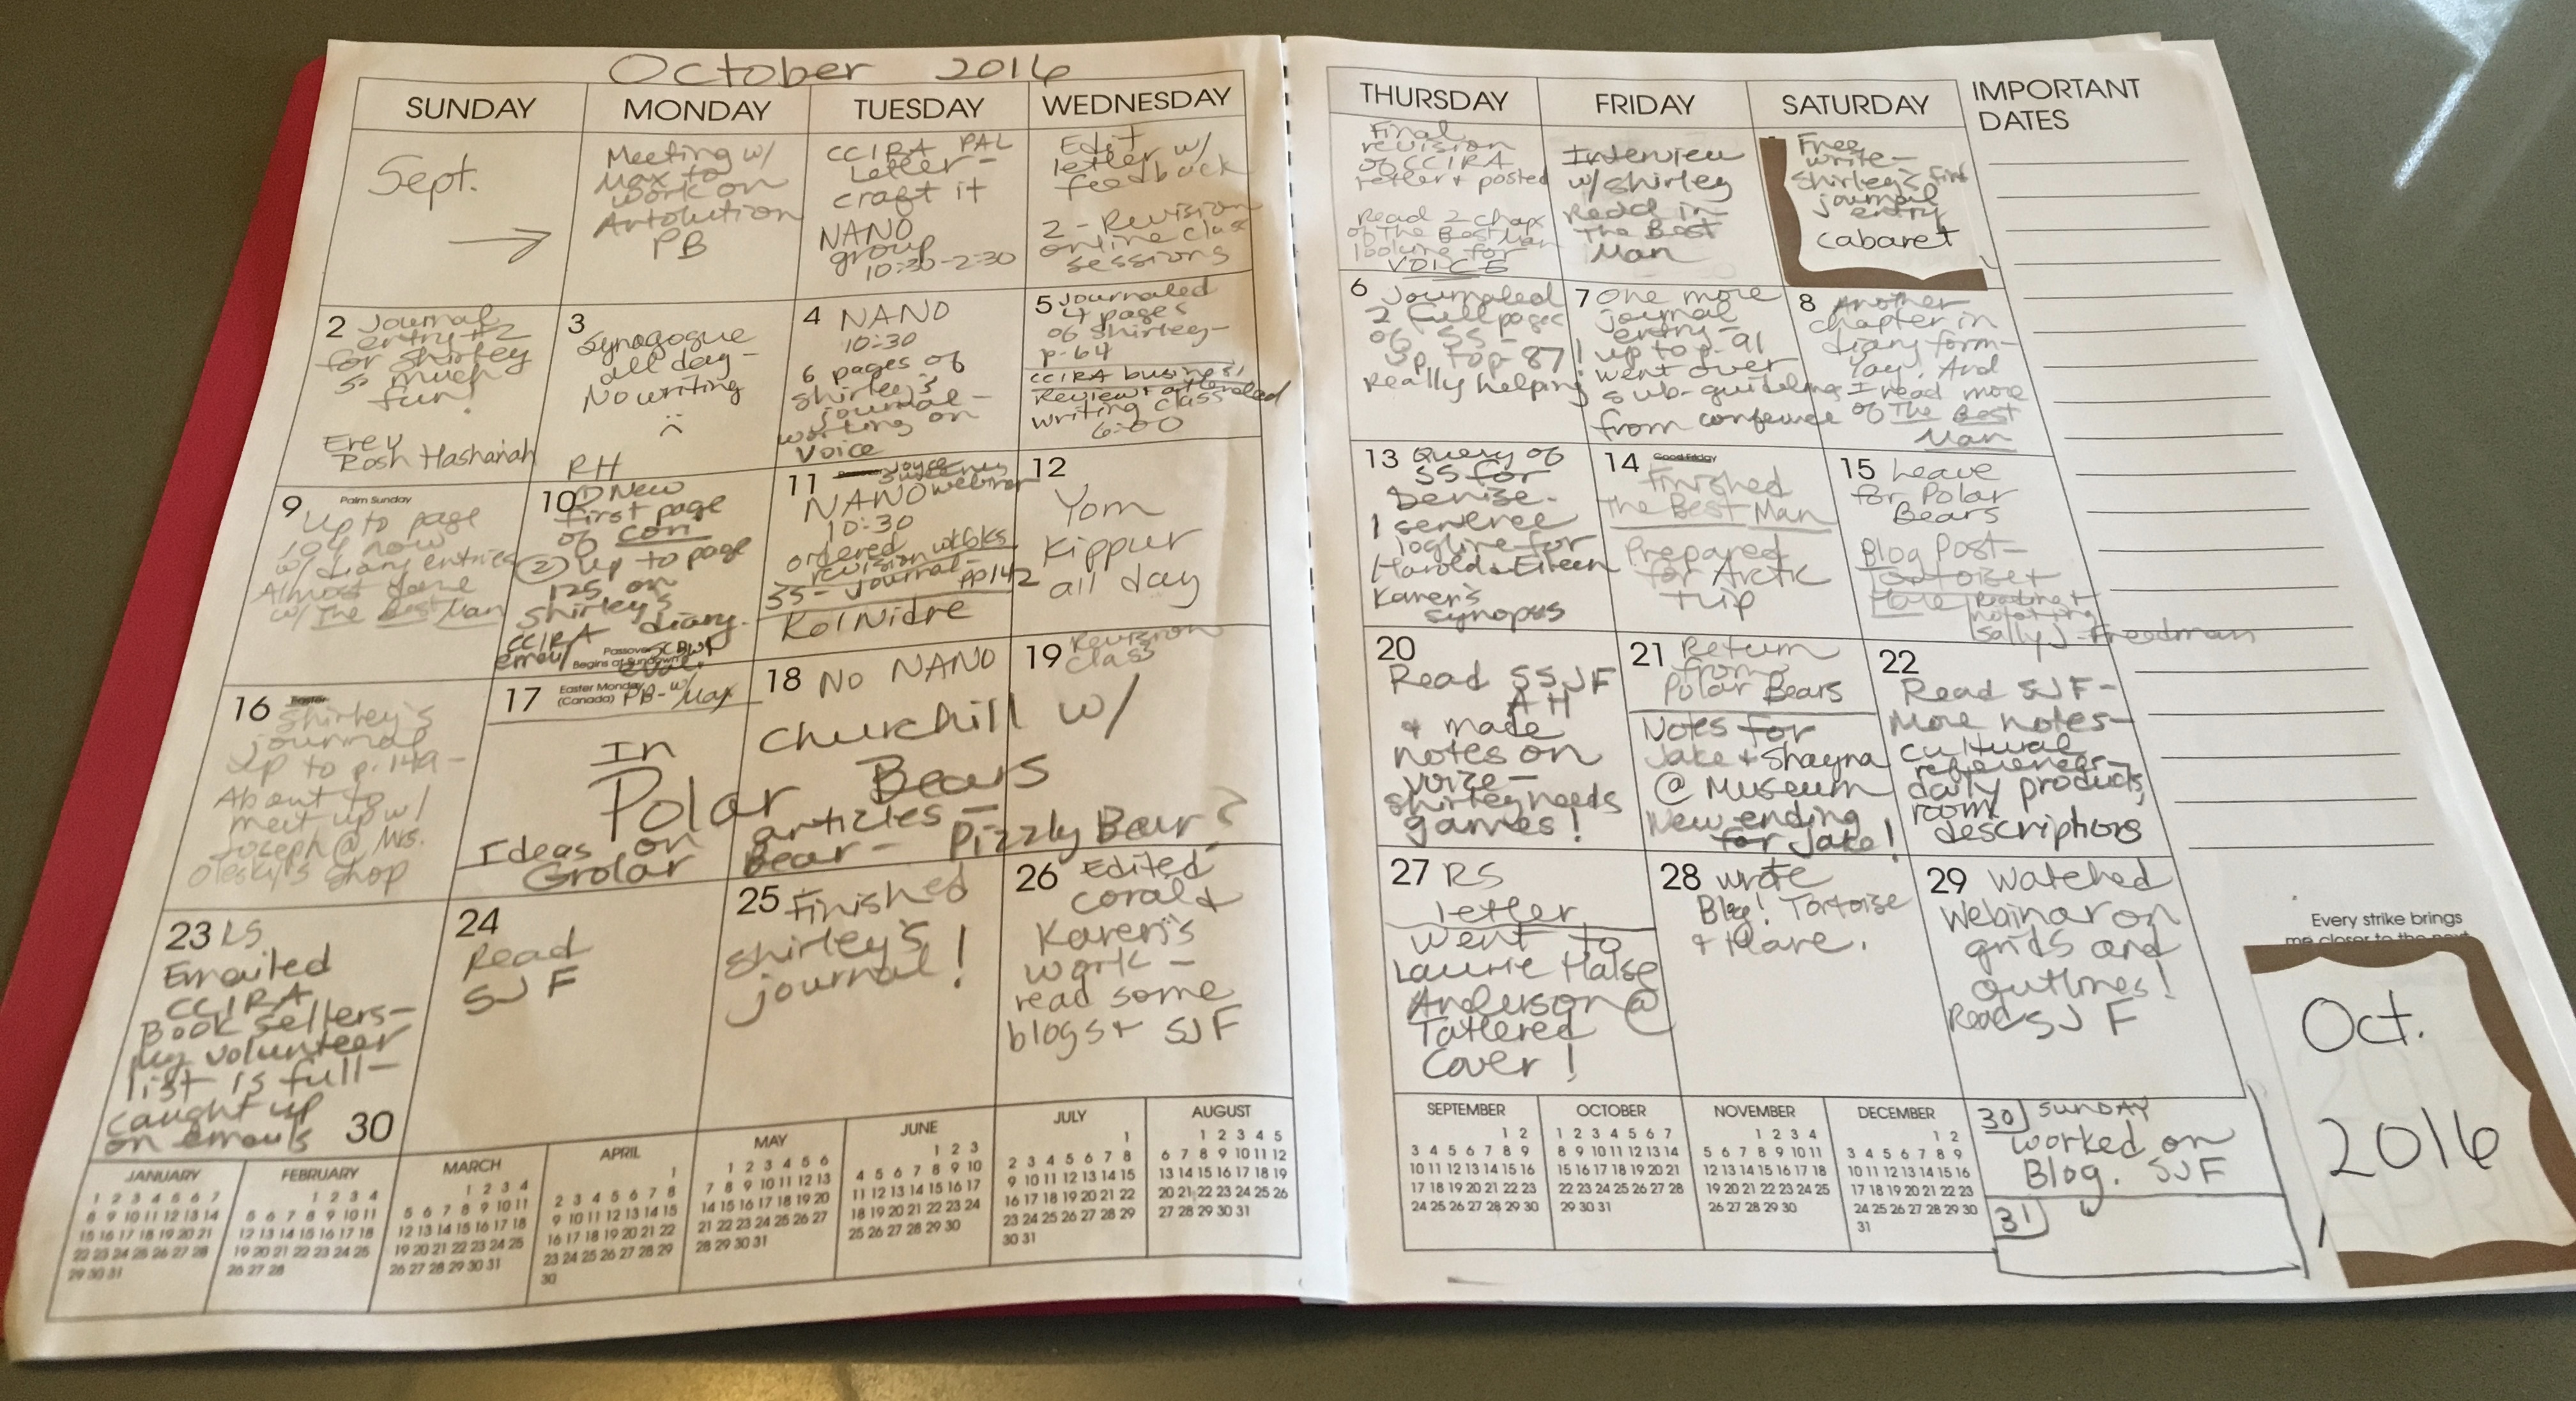 October 2016
SUNDAY
MONDAY
TUESDAY
WEDNESDAY
THURSDAY
FRIDAY
SATURDAY
IMPORTANT
DATES
Sept.
Meeting w/
Max to
work on
Artolution
PB
CCIRA PAL
Letter -
craft it
NANO
group
10:30-2:30
Edit
letter w/
feedback
2 - Revision
online class
sessions
Final
revision
of CCIRA
letter + posted
Read 2 chap
of The Best Man
looking for
VOICE
Interview
w/ Shirley
Read in
The Best
Man
Free
write -
Shirley's first
journal
entry
Cabaret
2 Journal
entry #2
for Shirley
so much
fun!
Erev
Rosh Hashanah
3
Synagogue
all day -
No writing
RH
4 NANO
10:30
6 pages of
Shirley's
journal -
working on
Voice
5 Journaled
4 pages
of Shirley -
p-64
CCIRA business
Review + attended
writing class
6:00
6 Journaled
2 full pages
of SS -
up to p-87!
Really helping!
7 One more
journal
entry -
up to p-91
went over
sub-guidelines
from conference
8 Another
chapter in
diary form -
Yay. And
I read more
of The Best
Man
9 Palm Sunday
Up to page
104 now
w/ diary entries
Almost done
w/ The Best Man
10 ① New
first page
of Cori
② up to page
125 on
Shirley's
diary.
CCIRA
email
Passover
Begins at Sundown
11 Joyce
Sweeney
NANO webinar
10:30
ordered
revision wkbks
SS - journal - pp142
Kol Nidre
12
Yom
Kippur
all day
13 Query of
SS for
Denise.
1 sentence
logline for
Harold & Eileen
Karen's
synopsis
14 Good Friday
Finished
The Best Man
Prepared
for Arctic
trip
15 Leave
for Polar
Bears
Blog Post -
Tortoise +
Hare
Reading +
notating
Sally J. Freedman
16 Easter
Shirley's
journal
up to p. 149 -
About to
meet up w/
Joseph @ Mrs.
Olesky's Shop
17 Easter Monday
(Canada) PB - w/ Max
18 No NANO
19 Revision
class
In Churchill w/
Polar Bears
Ideas on articles -
Grolar Bear - Pizzly Bear?
20
Read SSJF
AH
+ made
notes on
voice -
Shirley needs
games!
21 Return
from
Polar Bears
Notes for
Jake + Shayna
@ Museum
New ending
for Jake!
22
Read SJF -
More notes -
cultural
references -
daily products,
room
descriptions
23 LS
Emailed
CCIRA
Book sellers -
My volunteer
list is full -
caught up
on emails
30
24
Read
SJF
25 Finished
Shirley's
journal!
26 Edited
Coral &
Karen's
work -
read some
blogs + SJF
27 RS
letter
Went to
Laurie Halse
Anderson @
Tattered
Cover!
28 wrote
Blog! Tortoise
+ Hare.
29 Watched
Webinar on
grids and
outlines!
Read SJF
30 SUNDAY
Worked on
Blog. SJF
31
Every strike brings
me closer to the next
Oct.
2016
JANUARY
1 2 3 4 5 6 7
8 9 10 11 12 13 14
15 16 17 18 19 20 21
22 23 24 25 26 27 28
29 30 31
FEBRUARY
1 2 3 4
5 6 7 8 9 10 11
12 13 14 15 16 17 18
19 20 21 22 23 24 25
26 27 28
MARCH
1 2 3 4
5 6 7 8 9 10 11
12 13 14 15 16 17 18
19 20 21 22 23 24 25
26 27 28 29 30 31
APRIL
1
2 3 4 5 6 7 8
9 10 11 12 13 14 15
16 17 18 19 20 21 22
23 24 25 26 27 28 29
30
MAY
1 2 3 4 5 6
7 8 9 10 11 12 13
14 15 16 17 18 19 20
21 22 23 24 25 26 27
28 29 30 31
JUNE
1 2 3
4 5 6 7 8 9 10
11 12 13 14 15 16 17
18 19 20 21 22 23 24
25 26 27 28 29 30
JULY
1
2 3 4 5 6 7 8
9 10 11 12 13 14 15
16 17 18 19 20 21 22
23 24 25 26 27 28 29
30 31
AUGUST
1 2 3 4 5
6 7 8 9 10 11 12
13 14 15 16 17 18 19
20 21 22 23 24 25 26
27 28 29 30 31
SEPTEMBER
1 2
3 4 5 6 7 8 9
10 11 12 13 14 15 16
17 18 19 20 21 22 23
24 25 26 27 28 29 30
OCTOBER
1 2 3 4 5 6 7
8 9 10 11 12 13 14
15 16 17 18 19 20 21
22 23 24 25 26 27 28
29 30 31
NOVEMBER
1 2 3 4
5 6 7 8 9 10 11
12 13 14 15 16 17 18
19 20 21 22 23 24 25
26 27 28 29 30
DECEMBER
1 2
3 4 5 6 7 8 9
10 11 12 13 14 15 16
17 18 19 20 21 22 23
24 25 26 27 28 29 30
31